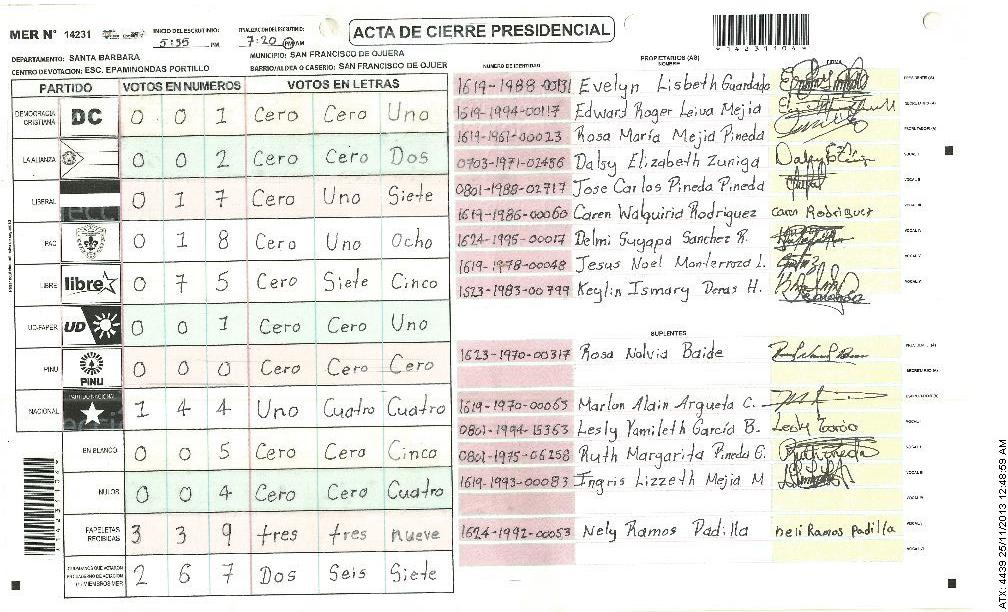 MER N° 14231
INICIO DEL ESCRUTINIO: 5:55 PM
FINALIZACION DEL ESCRUTINIO: 7:20 PM AM
ACTA DE CIERRE PRESIDENCIAL
14231104
DEPARTAMENTO: SANTA BARBARA
MUNICIPIO: SAN FRANCISCO DE OJUERA
CENTRO DE VOTACION: ESC. EPAMINONDAS PORTILLO
BARRIO/ALDEA O CASERIO: SAN FRANCISCO DE OJUER
PARTIDO VOTOS EN NUMEROS VOTOS EN LETRAS
DEMOCRACIA CRISTIANA DC 0 0 1 Cero Cero Uno
LA ALIANZA 0 0 2 Cero Cero Dos
LIBERAL 0 1 7 Cero Uno Siete
PAC 0 1 8 Cero Uno Ocho
LIBRE libre 0 7 5 Cero Siete Cinco
UD-FAPER UD 0 0 1 Cero Cero Uno
PINU PINU 0 0 0 Cero Cero Cero
NACIONAL PARTIDO NACIONAL 1 4 4 Uno Cuatro Cuatro
EN BLANCO 0 0 5 Cero Cero Cinco
NULOS 0 0 4 Cero Cero Cuatro
PAPELETAS RECIBIDAS 3 3 9 tres tres nueve
CIUDADANOS QUE VOTARON 2 6 7 Dos Seis Siete
NUMERO DE IDENTIDAD PROPIETARIOS (AS) NOMBRE FIRMA
1619-1988-00131 Evelyn Lisbeth Guardado
1619-1994-00117 Edward Roger Leiva Mejia
1619-1961-00023 Rosa María Mejia Pineda
0703-1971-02486 Dalsy Elizabeth Zuniga
0801-1988-02717 Jose Carlos Pineda Pineda
1619-1986-00060 Caren Walquiria Rodriguez caren Rodriguez
1624-1995-00017 Delmi Suyapa Sanchez R.
1619-1978-00048 Jesus Noel Monterroza L.
1523-1983-00799 Keylin Ismary Deras H.
SUPLENTES
1623-1970-00317 Rosa Nolvia Baide
1619-1970-00063 Marlon Alain Argueta C.
0801-1994-15363 Lesly Yamileth García B.
0801-1975-06258 Ruth Margarita Pineda G.
1619-1993-00083 Ingris Lizzeth Mejia M
1624-1992-00053 Nely Ramos Padilla neli Ramos padilla
ATX: 4439 25/11/2013 12:48:59 AM